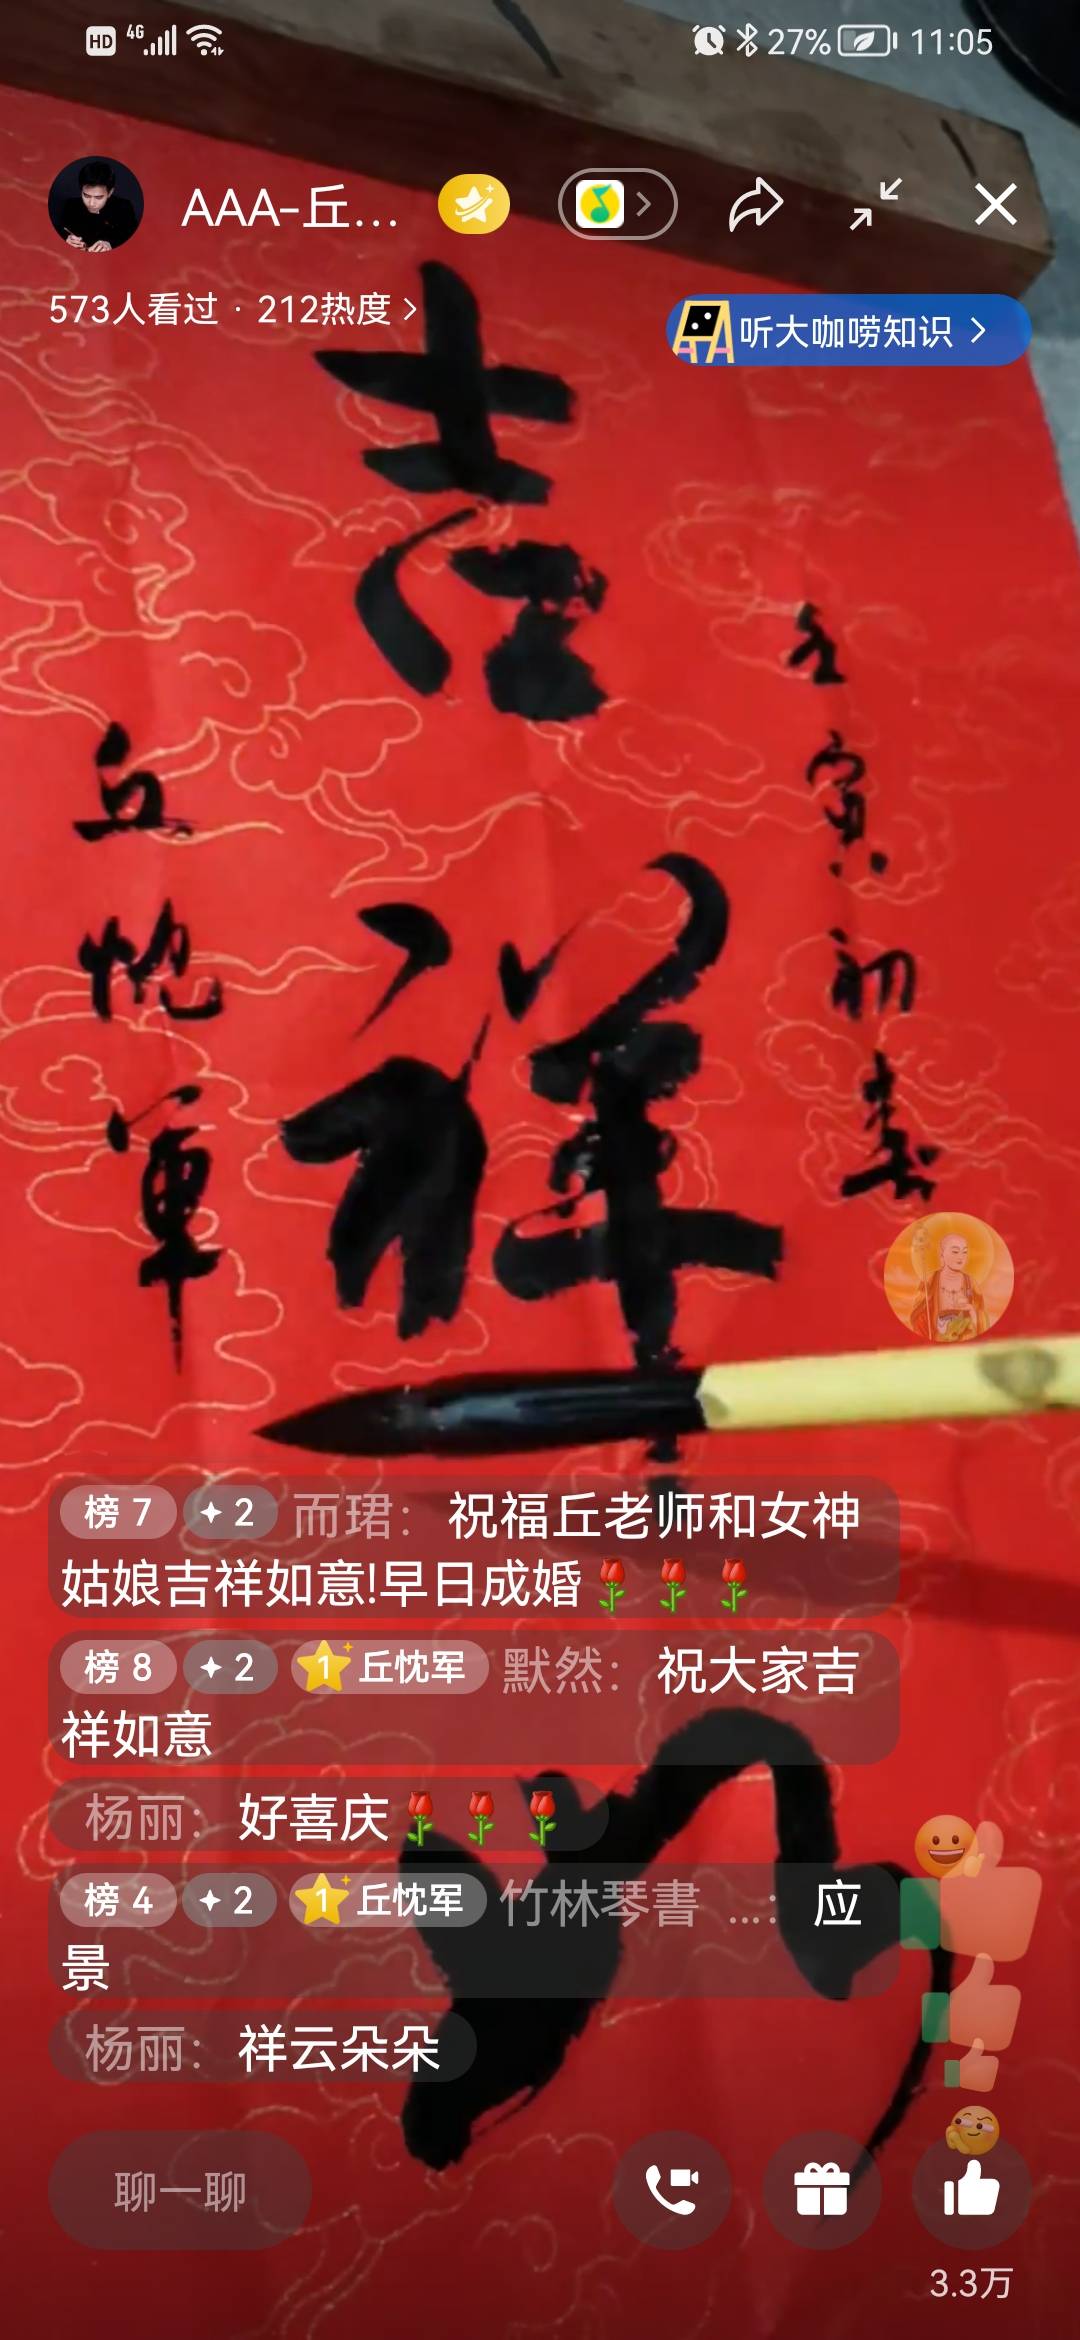 HD 4G 27% 11:05
AAA-丘...
573人看过 · 212热度 >
听大咖唠知识 >
吉祥
壬寅初春
丘忱军
榜 7 2 而珺： 祝福丘老师和女神
姑娘吉祥如意!早日成婚🌹🌹🌹
榜 8 2 1 丘忱军 默然： 祝大家吉
祥如意
杨丽： 好喜庆🌹🌹🌹
榜 4 2 1 丘忱军 竹林琴書 ...： 应
景
杨丽： 祥云朵朵
聊一聊
3.3万